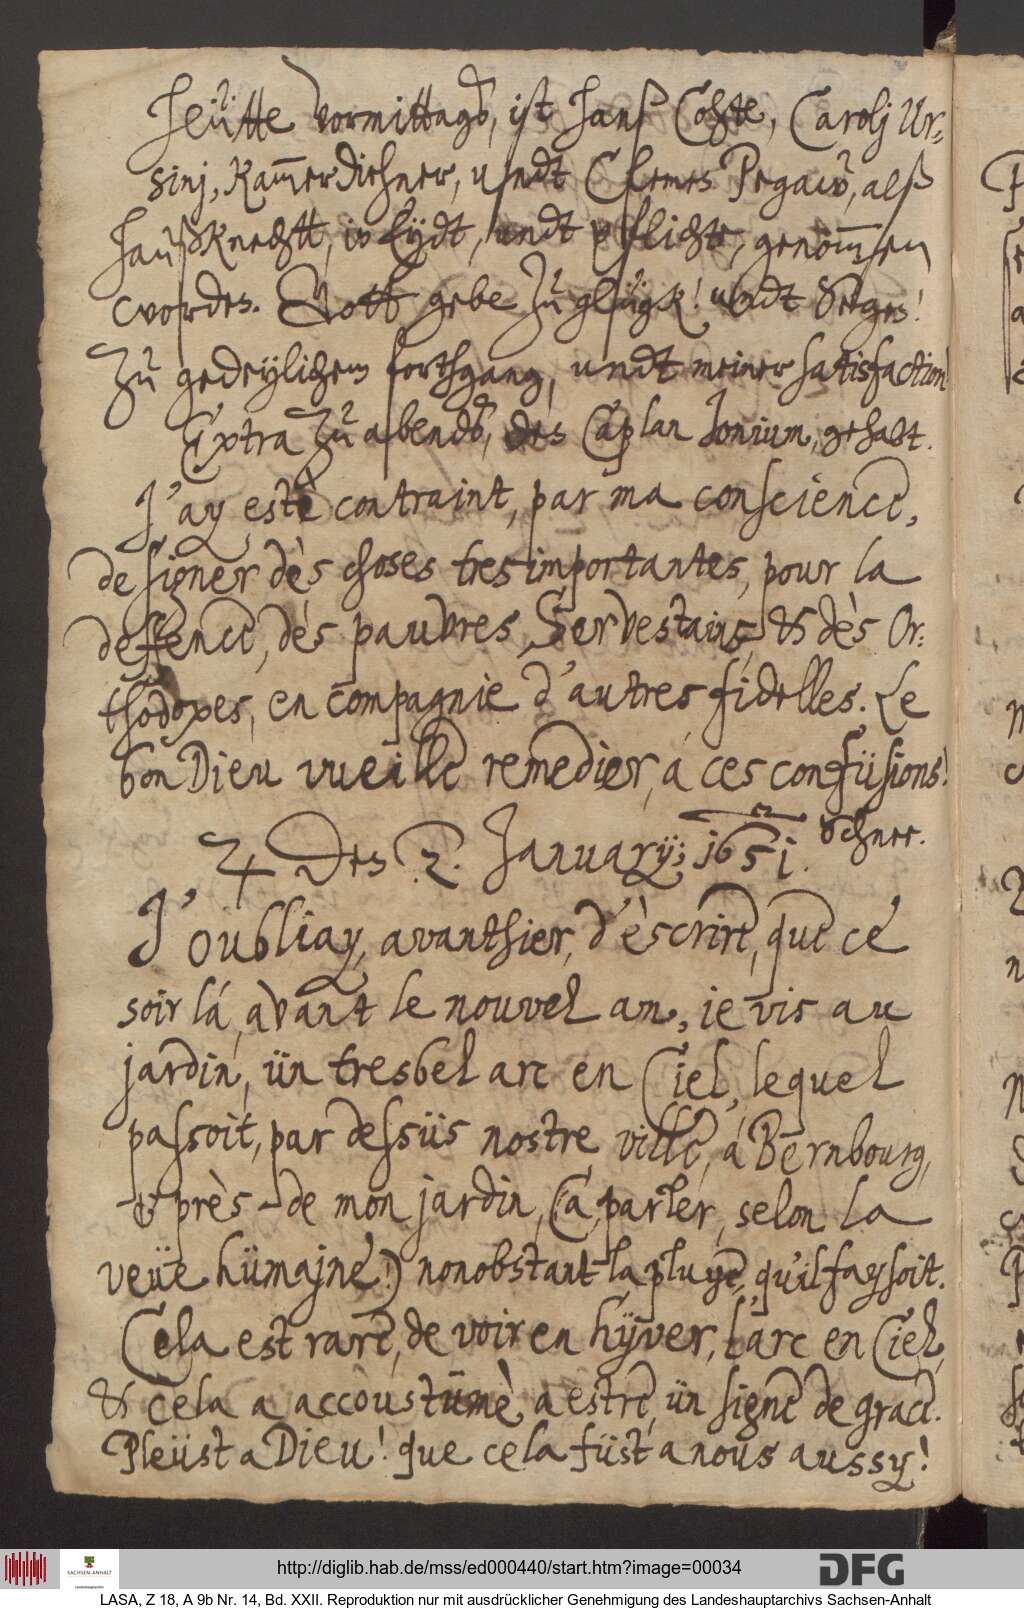 Heütte vormittagß, ist Hanß Cohte, Carolj Ur-
sinj, Kam̅erdiehner, undt Clemen Pegaw, alß
Haußknechtt, in Eydt, undt pflicht, genom̅en
worden. Gott gebe zu glück! undt Segen!
Zu gedeylichem forthgang, undt meiner satisfaction
Extra zu abendß, den Caplan Jonium, gehabt.
J'ay, estè contraint, par ma conscience,
de signer dès choses tres importantes, pour la
deffence, dés pauvres, Servestains, & dès Or-
thodoxes, en compagnie d'autres fidelles. Le
bon Dieu vueille remedier, a ces confüsions!
♃ Den 2. January; 1651. Schnee.
J'oubliay, avanthier, d'èscrire, que ce
soir lá, avant le nouvel an, ie vis au
jardin, ün tresbel arc en Ciel, lequel
passoit, par dessüs nostre ville, á Bernbourg,
& près de mon jardin, (a parler, selon la
veüe hümajne!) nonobstant la pluye, qu'il faysoit.
Cela est rare, de voir en hÿver, l'arc en Ciel,
& cela a accoustümè, a estre, ün signe de grace.
Pleüst a Dieu! que cela füst a nous aussy!
http://diglib.hab.de/mss/ed000440/start.htm?image=00034
DFG
SACHSEN-ANHALT
LASA, Z 18, A 9b Nr. 14, Bd. XXII. Reproduktion nur mit ausdrücklicher Genehmigung des Landeshauptarchivs Sachsen-Anhalt